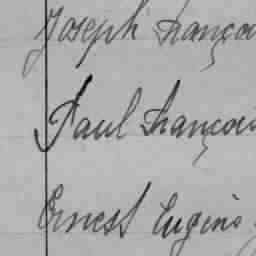 Joseph Françoi
Paul François
Ernest Eugène